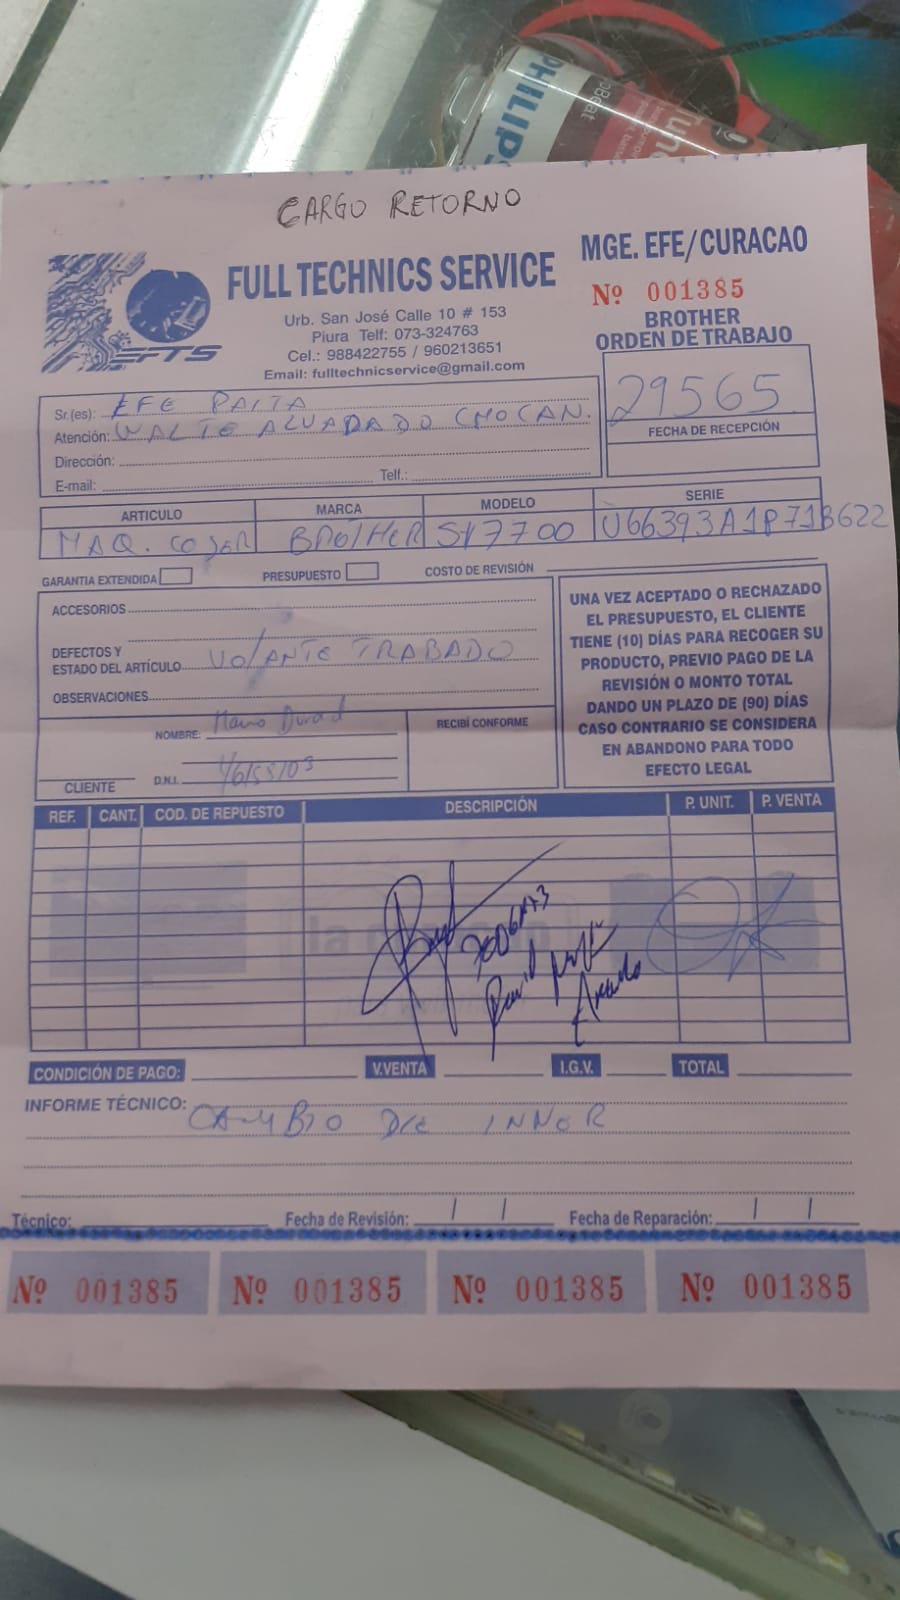 PHILIPS
CARGO RETORNO
EFTS
FULL TECHNICS SERVICE
Urb. San José Calle 10 # 153
Piura Telf: 073-324763
Cel.: 988422755 / 960213651
Email: fulltechnicservice@gmail.com
MGE. EFE/CURACAO
Nº 001385
BROTHER
ORDEN DE TRABAJO
29565
FECHA DE RECEPCIÓN
Sr.(es): EFE PAITA
Atención: WALTE ALVADADO CHOCAN.
Dirección:
E-mail: Telf.:
ARTICULO MARCA MODELO SERIE
MAQ. COSER BROTHER S17700 U66393A1P71B622
GARANTIA EXTENDIDA PRESUPUESTO COSTO DE REVISIÓN
ACCESORIOS
DEFECTOS Y
ESTADO DEL ARTÍCULO VOLANTE TRABADO
OBSERVACIONES
NOMBRE:
D.N.I.
CLIENTE
RECIBÍ CONFORME
UNA VEZ ACEPTADO O RECHAZADO
EL PRESUPUESTO, EL CLIENTE
TIENE (10) DÍAS PARA RECOGER SU
PRODUCTO, PREVIO PAGO DE LA
REVISIÓN O MONTO TOTAL
DANDO UN PLAZO DE (90) DÍAS
CASO CONTRARIO SE CONSIDERA
EN ABANDONO PARA TODO
EFECTO LEGAL
REF. CANT. COD. DE REPUESTO DESCRIPCIÓN P. UNIT. P. VENTA
David
CONDICIÓN DE PAGO: V.VENTA I.G.V. TOTAL
INFORME TÉCNICO: CAMBIO DE INNER
Técnico: Fecha de Revisión: / / Fecha de Reparación: / /
Nº 001385 Nº 001385 Nº 001385 Nº 001385